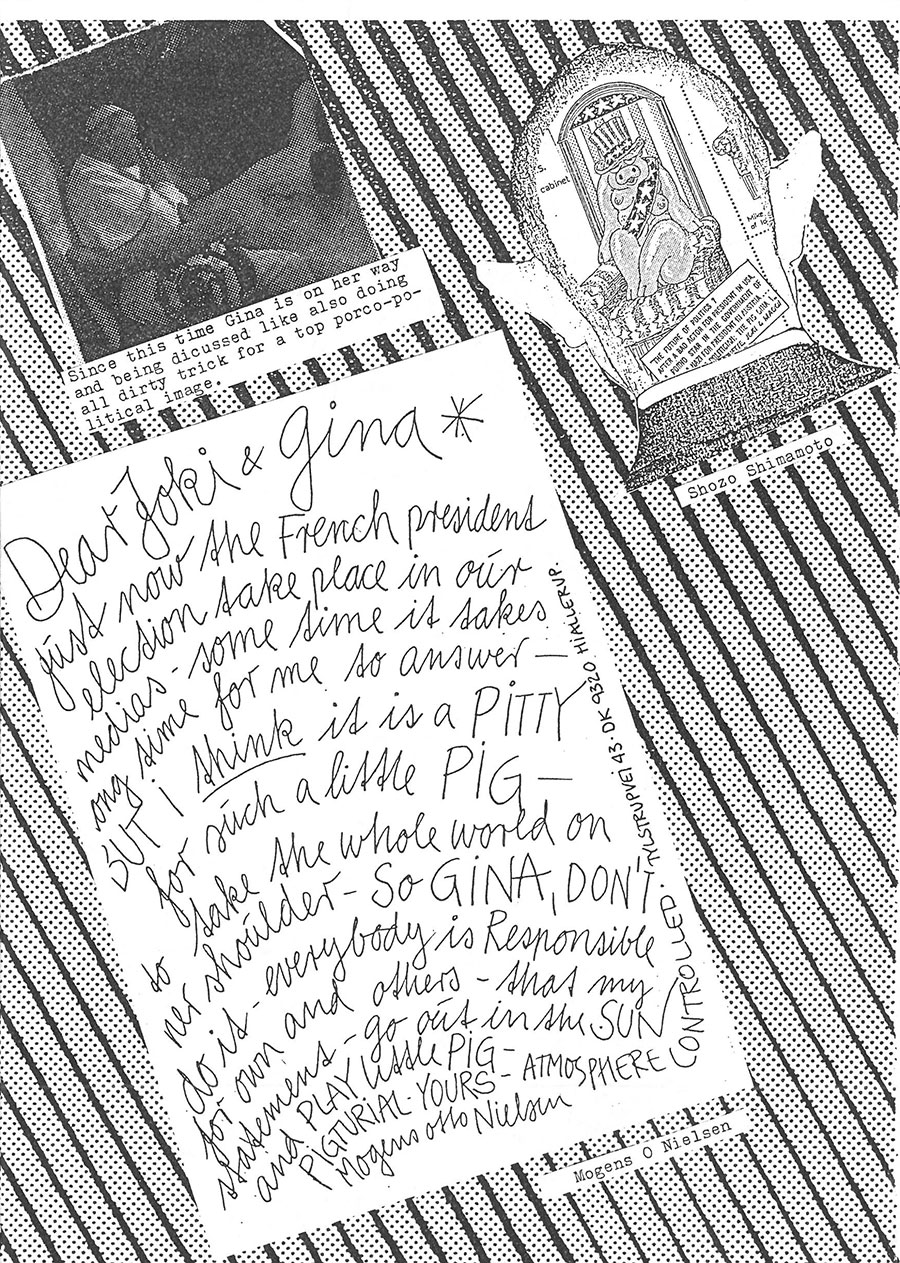 Since this time Gina is on her way
and being dicussed like also doing
all dirty trick for a top porco-po-
litical image.
S.
cabinet
THE FUTURE OF POLITICS ?
AFTER A BAD ACTOR FOR PRESIDENT IN USA,
PORNO STAR IN THE GOVERNMENT OF
Shozo Shimamoto
Dear Joki & Gina *
just now the French president
election take place in our
medias - some time it takes
ong time for me to answer —
BUT I think it is a PITTY
for such a little PIG —
to take the whole world on
her shoulder - So GINA, DON'T
do it - everybody is Responsible
for own and others - that my
statement - go out in the SUN
and PLAY little PIG -
PIGTURIAL-YOURS -
Mogens otto Nielsen
ATMOSPHERE CONTROLLED. TULSTRUPVEJ 43 DK 9320 HJALLERUP
Mogens O Nielsen